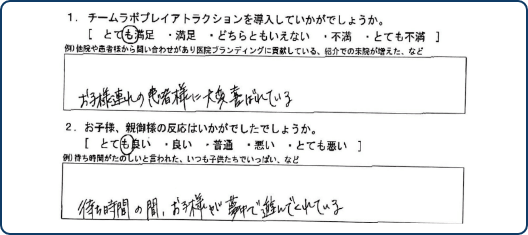 1．チームラボプレイアトラクションを導入していかがでしょうか。
［ とても満足 ・満足 ・どちらともいえない ・不満 ・とても不満 ］
例）他院や患者様から問い合わせがあり医院ブランディングに貢献している、紹介での来院が増えた、など
お子様連れの患者様に大変喜ばれている
2．お子様、親御様の反応はいかがでしたでしょうか。
［ とても良い ・良い ・普通 ・悪い ・とても悪い ］
例）待ち時間がたのしいと言われた、いつも子供たちでいっぱい、など
待ち時間の間、お子様が夢中で遊んでくれている